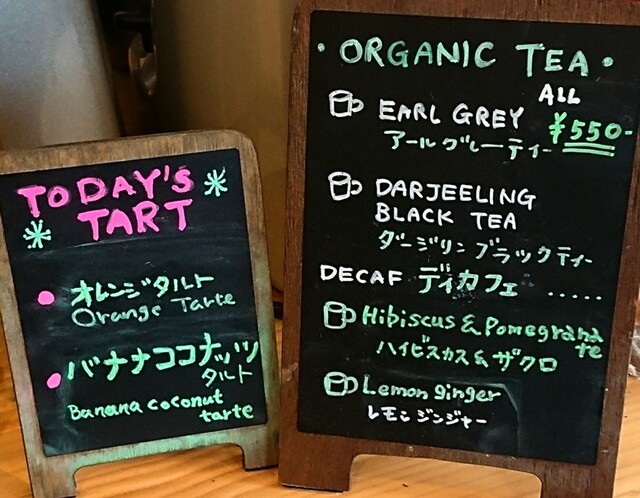 TODAY'S
TART
オレンジタルト
Orange Tarte
バナナココナッツ
タルト
Banana coconut
tarte
・ORGANIC TEA・
ALL
¥550-
EARL GREY
アールグレーティー
DARJEELING
BLACK TEA
ダージリンブラックティー
DECAF ディカフェ ......
Hibiscus & Pomegrana
te
ハイビスカス&ザクロ
Lemon ginger
レモンジンジャー